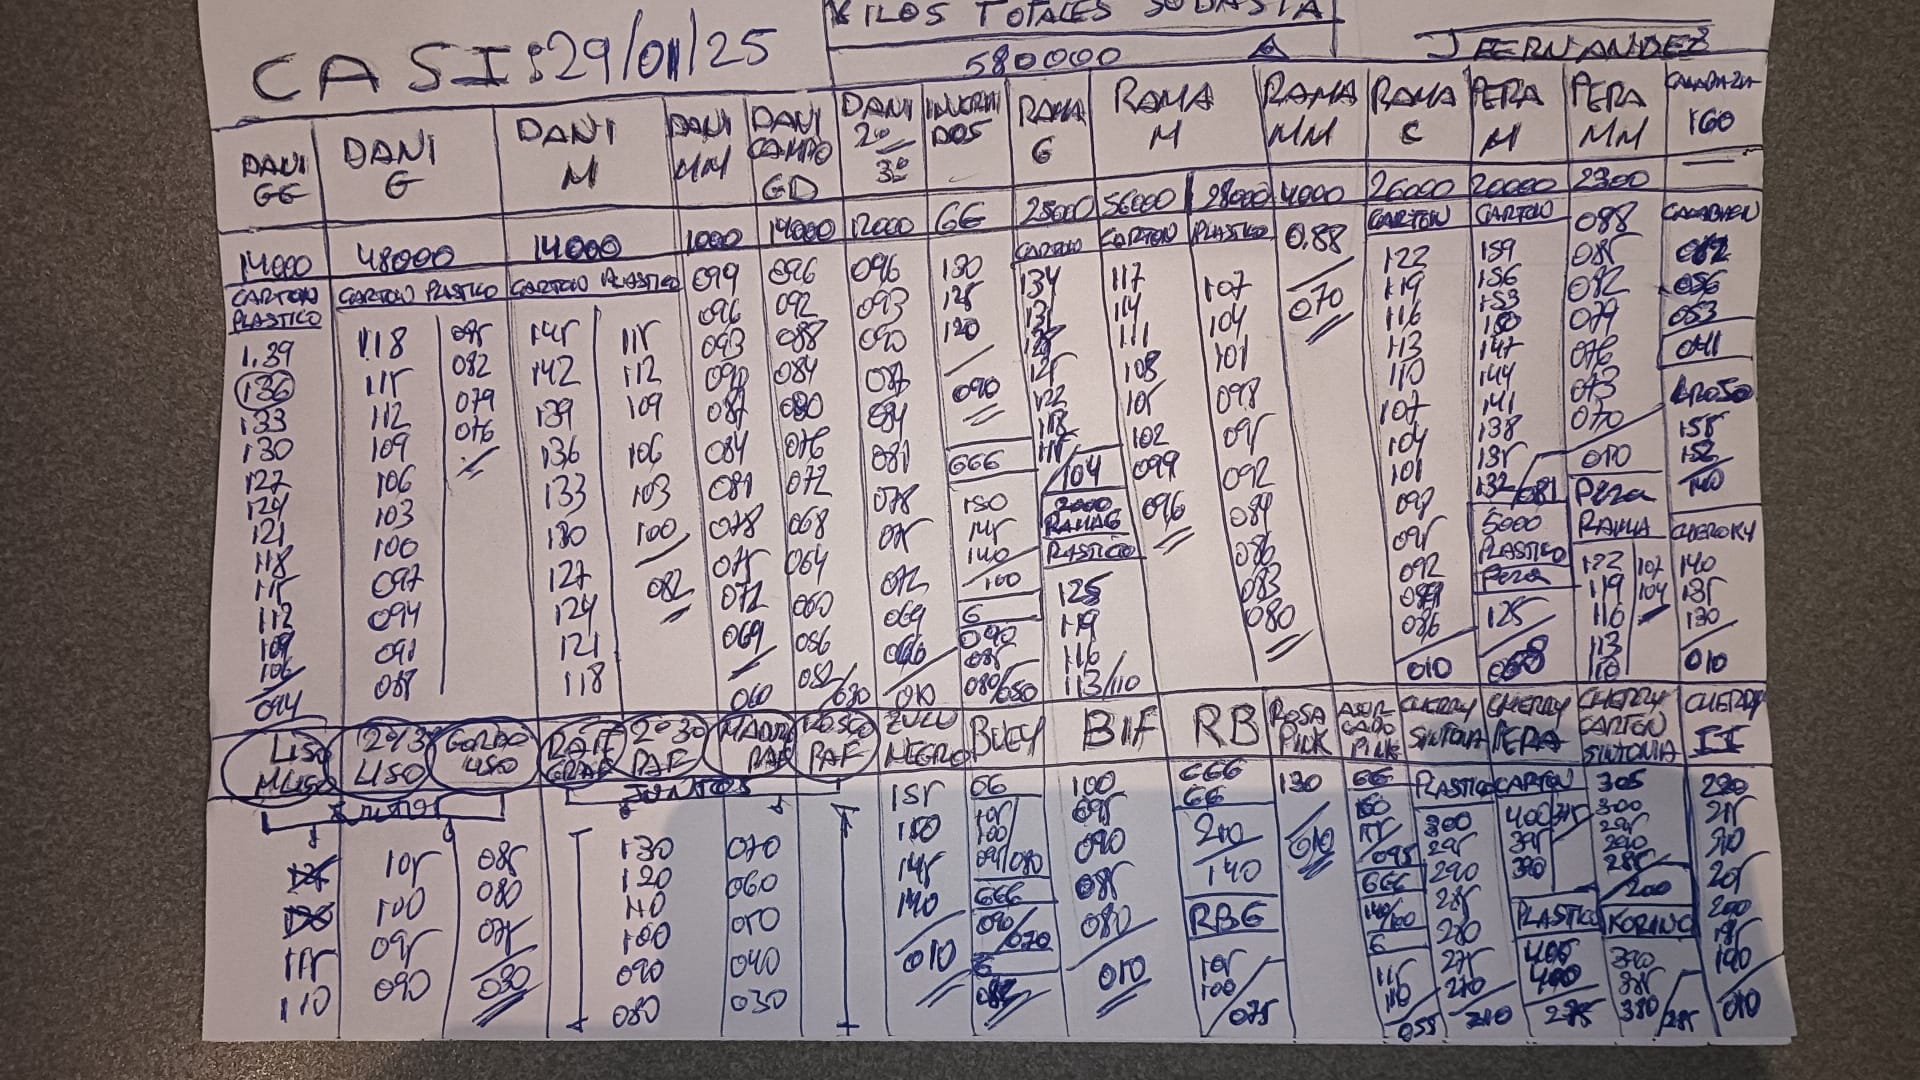 KILOS TOTALES SUBASTA
CASI: 29/01/25
580000
J FERNANDEZ
DANI GG
DANI G
DANI M
DANI MM
DANI CAMPO GD
DANI 2º 3º
RAMA G
RAMA M
RAMA MM
RAMA C
PERA M
PERA MM
160
14000
48000
14000
1000
14000
12000
GG
25000
56000
28000
4000
26000
20000
2300
CARTON PLASTICO
CARTON PLASTICO
CARTON PLASTICO
CARTON
CARTON
PLASTICO
CARTON
CARTON
1.39
136
133
130
127
124
121
118
115
112
109
106
094
118
115
112
109
106
103
100
097
094
091
088
085
082
079
076
145
142
139
136
133
130
127
124
121
118
115
112
109
106
103
100
082
099
096
093
090
087
084
081
078
075
072
069
060
096
092
088
084
080
076
072
068
064
060
056
052/030
096
093
090
087
084
081
078
075
072
069
066
010
130
125
120
090
GGG
150
145
140
100
G
090
085
080/050
134
131
128
125
122
118
115
104
2000
RAMA G
PLASTICO
125
119
116
113/110
117
114
111
108
105
102
099
096
107
104
101
098
095
092
089
086
083
080
0.88
070
122
119
116
113
110
107
104
101
098
095
092
089
086
010
159
156
153
150
147
144
141
138
135
132/081
5000
PLASTICO
PERA
125
088
085
082
079
076
073
070
010
PERA
RAMA
122
119
116
113
110
107
104
056
053
041
155
152
140
140
135
130
010
LISO
2º/3º LISO
GORDO LISO
2º 3º RAF
RAF
NEGRO
BUEY
BIF
RB
ROSA PINK
PINK
CHERRY SINTONIA
CHERRY PERA
CHERRY CARTON SINTONIA
CHERRY II
JUNTOS
JUNTOS
115
110
105
100
095
090
085
080
075
030
130
120
110
100
090
080
070
060
050
040
030
155
150
145
140
010
GG
105
100
095/080
GGG
090/070
G
100
095
090
085
080
010
GGG
GG
210
140
RBG
105
100
075
130
010
GG
160
155
095
GGG
140/100
G
115
110
055
PLASTICO
300
295
290
285
280
275
270
210
CARTON
400
395
390
PLASTICO
405
400
275
305
300
295
290
285
200
KORINO
390
385
380/285
220
215
210
205
200
195
190
010